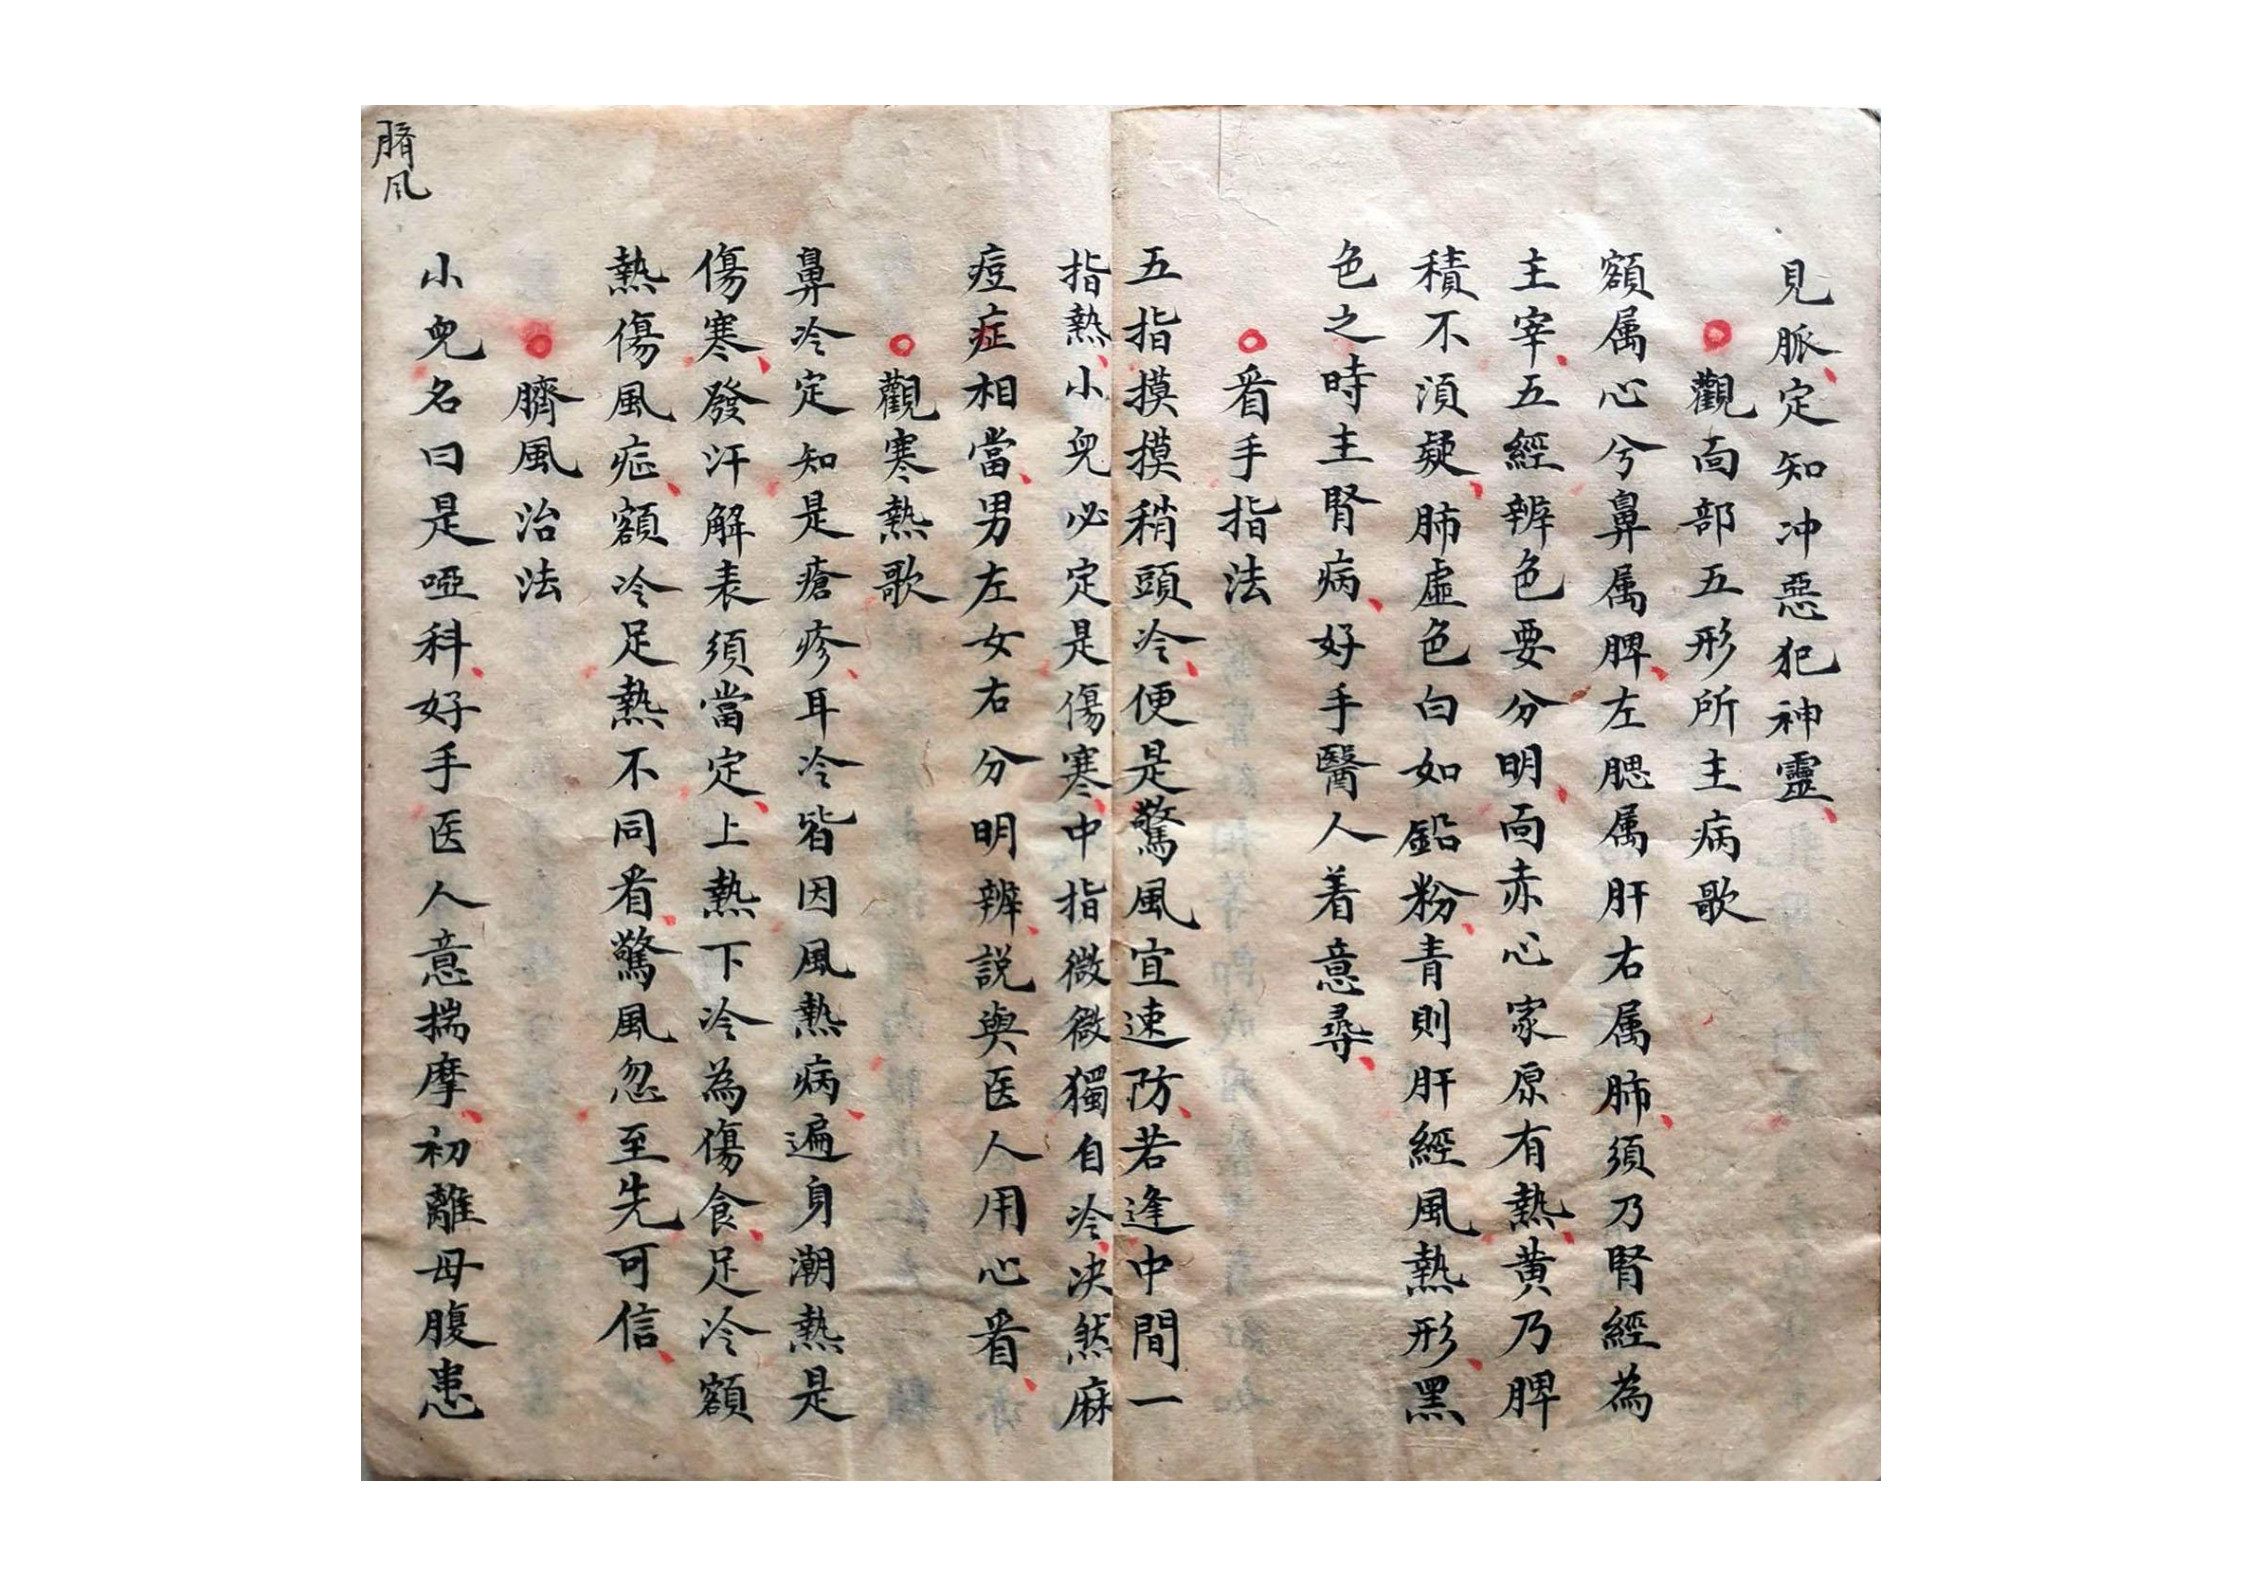 見脈定知冲惡犯神靈
觀面部五形所主病歌
額属心兮鼻属脾左腮属肝右属肺須乃腎經為
主宰五經辨色要分明面赤心家原有熱黄乃脾
積不湏疑肺虛色白如鉛粉青則肝經風熱形黑
色之時主腎病好手醫人着意尋
看手指法
五指摸摸稍頭冷便是驚風宜速防若逢中間一
指熱小兒必定是傷寒中指微微獨自冷决然麻
痘症相當男左女右分明辨説與医人用心看
觀寒熱歌
鼻冷定知是瘡疹耳冷皆因風熱病遍身潮熱是
傷寒發汗解表須當定上熱下冷為傷食足冷額
熱傷風症額冷足熱不同看驚風忽至先可信
臍風治法
小兒名曰是啞科好手医人意揣摩初離母腹患
臍风